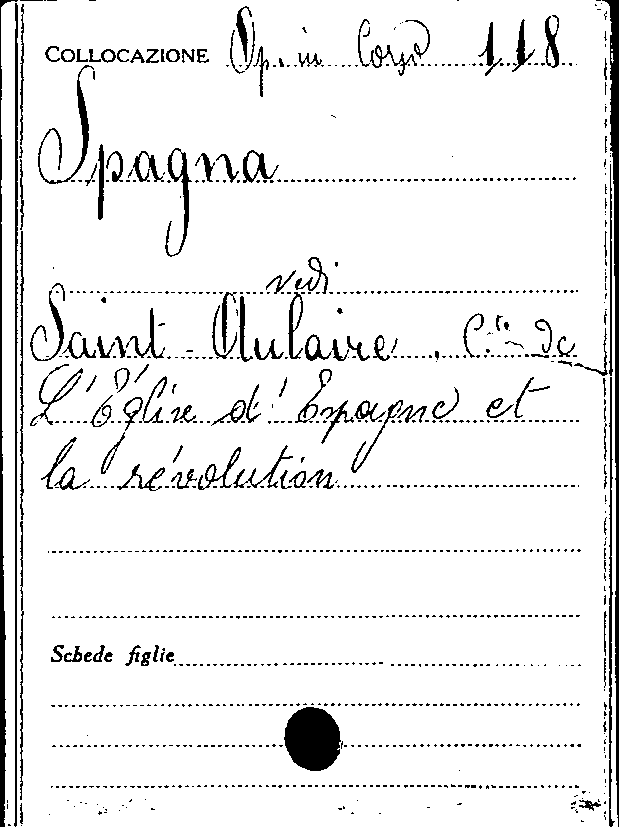 COLLOCAZIONE Op. in Corso 118
Spagna
vedi
Saint-Aulaire, C.te de
L'Église d'Espagne et
la révolution
Schede figlie